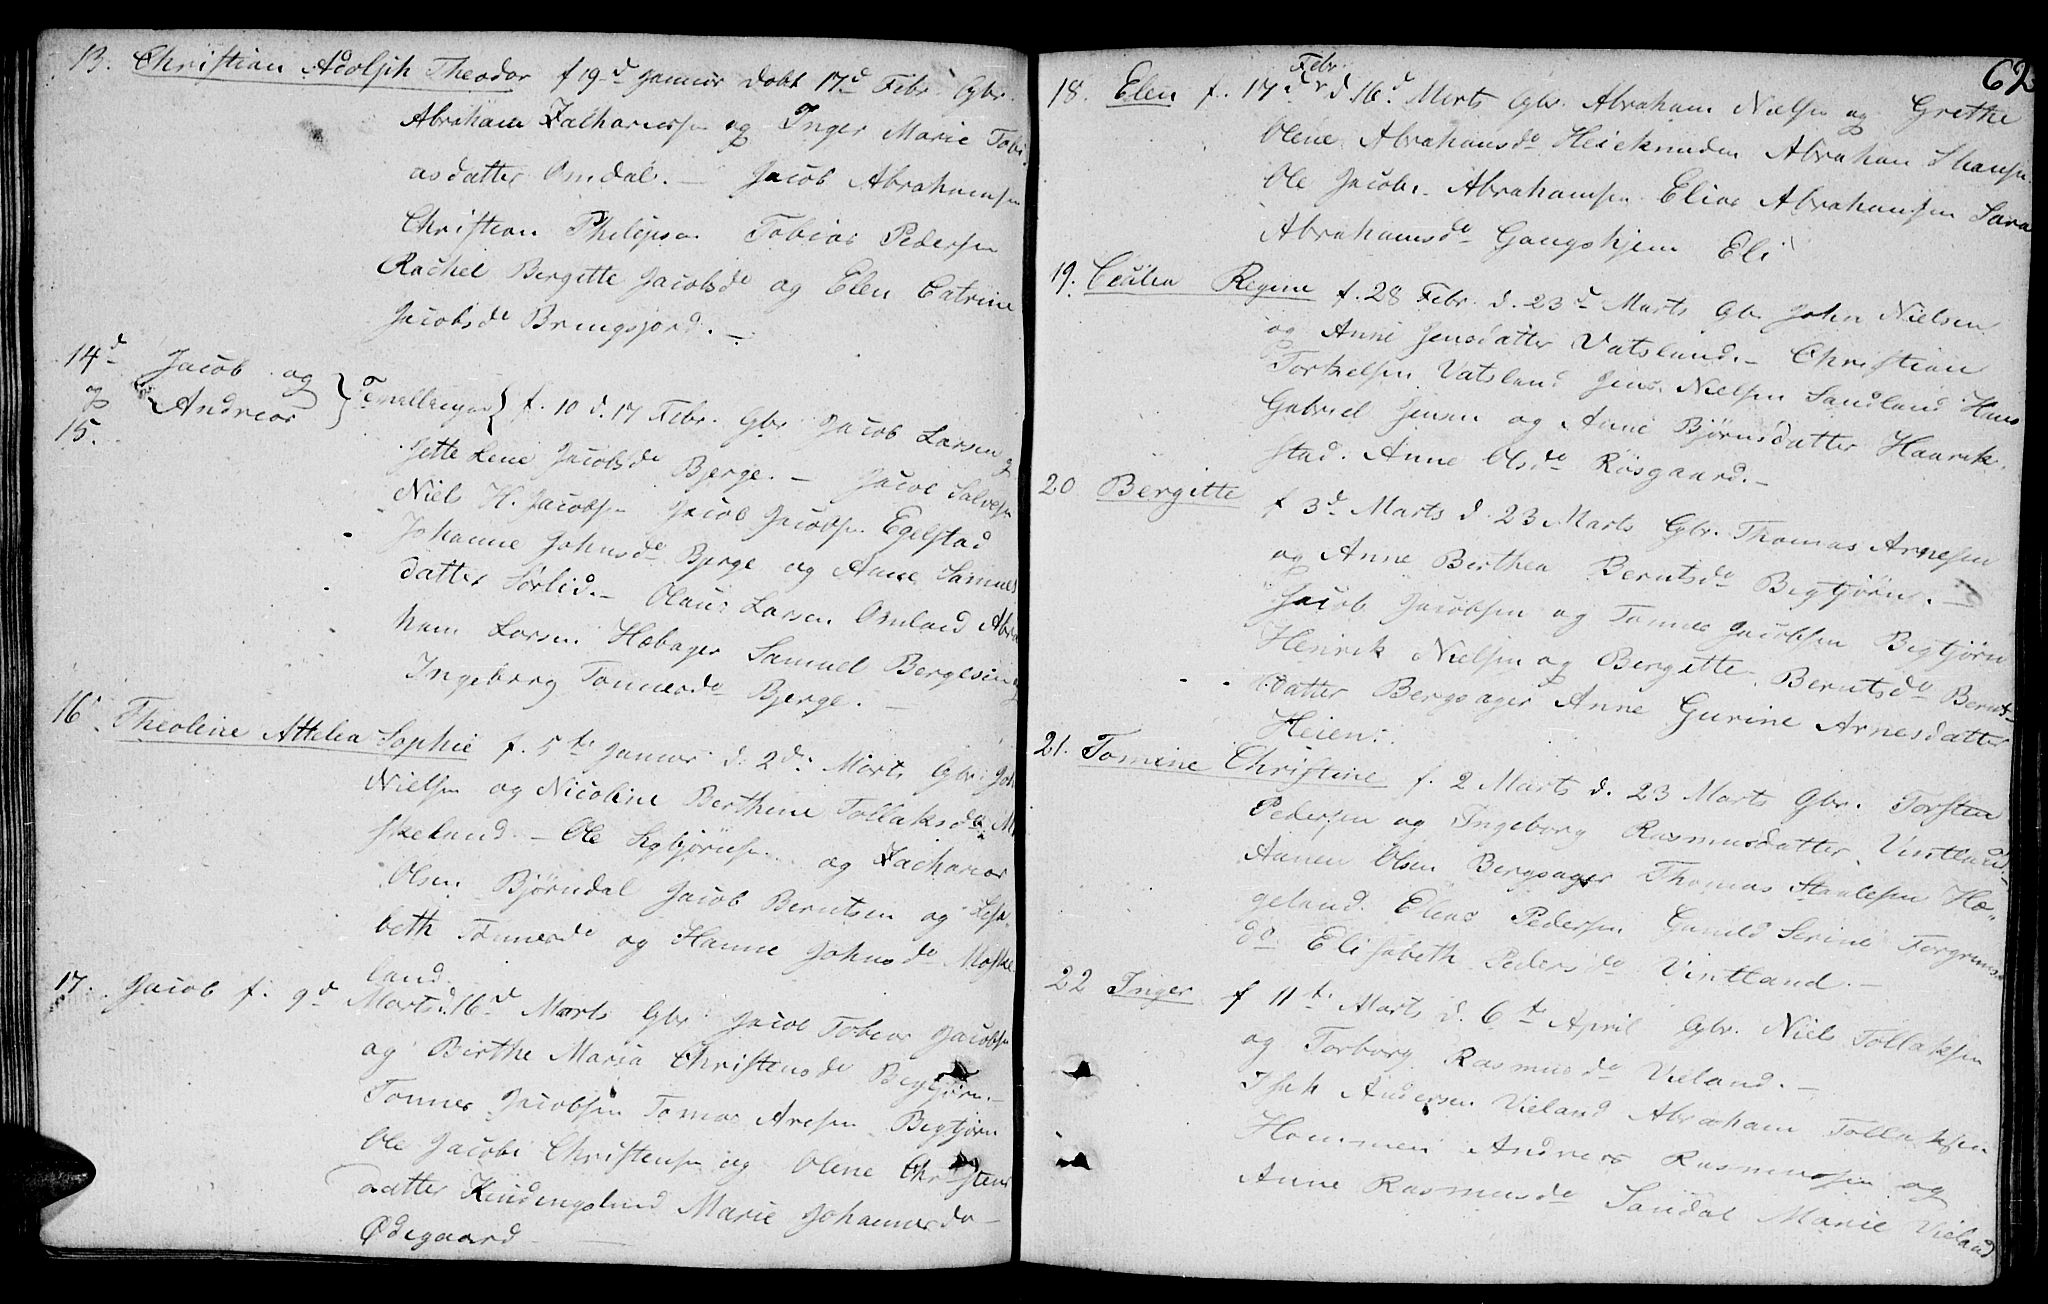 13. Christian Adolph Theodor f 19d Januar Døbt 17d Febr. Gbr.
Abraham Zachariesen og Inger Marie Tobi
asdatter Omdal. — Jacob Abrahamsen
Christian Philipsen Tobias Pedersen
Rachel Bergitte Jacobsdr og Elen Catrine
Jacobsdr Bringsjord. —
14d Jacob og
og Andreas } Tvillinger { f. 10 d. 17 Febr. Gbr. Jacob Larsen og
15.
Jette Lene Jacobsdr Berge. — Jacob Salvesen
Niels H. Jacobsen Jacob Jacobsen Egelstad
Johanne Johnsdr Berge og Anne Samuels
datter Sørlid. — Olaus Larsen Omland Abra
ham Larsen Hæbager Samuel Bergesen og
Ingeborg Tønnesdr Berge. —
16. Theoline Attelia Sophie f. 5te Januar d. 2d Marts Gbr. Joh
Nielsen og Nicoline Berthine Tollaksdr Mo
skeland. — Ole Sigbjørnsen og Zacharias
Olsen Bjørndal Jacob Berntsen og Lisa
beth Tønnesdr og Hanne Johnsdr Moske
land.
17. Jacob f. 9d Marts d. 16d Marts Gbr. Jacob Tobias Jacobsen
og Birthe Maria Christensdr Begtjørn. —
Tønnes Jacobsen Tomas Arnesen Begtjørn
Ole Jacob Christensen og Olene Christens
datter Kindingsland Marie Johannesdr
Ødegaard —
62
Febr.
18. Elen f. 17d d. 16d Marts Gbr. Abraham Nielsen og Grethe
Olene Abrahamsdr Heieknuden Abraham
Ole Jacob Abrahamsen Elias Abrahamsen Sara
Abrahamsdr Gangskjem Eli
19. Cecilia Regine f. 28 Febr. d. 23d Marts Gbr. John Nielsen
og Anne Jensdatter Vatsland. — Christian
Torkelsen Vatsland Jens Nielsen Sandland Hans
Gabriel Jensen og Anne Bjørnsdatter Haarik
stad. Anne Olsdr Røsgaard. —
20 Bergitte f 3d Marts d. 23 Marts Gbr. Thomas Arnesen
og Anne Birthea Berntsdr Begtjørn. —
Jacob Jacobsen og Tønnes Jacobsen Begtjørn
Henrik Nielsen og Bergitte Berntsdr Bernts
datter Bergsager Anne Gurine Arnesdatter
Heien.
21. Tomine Christine f. 2 Marts d. 23 Marts Gbr. Torsten
Pedersen og Ingeborg Rasmusdatter Vintland. —
Aanen Olsen Bergsager Thomas Staalesen Hæ
geland. Elias Pedersen Gunild Serine Torgrims
dr Elisabeth Pedersdr Vintland. —
22 Inger f 11te Marts d. 6te April Gbr. Niels Tollaksen
og Torborg Rasmusdr Vieland. —
Andersen Vieland Abraham Tollaksen
Hommen Andreas Rasmussen og
Anne Rasmusdr Sandal Marie Vieland